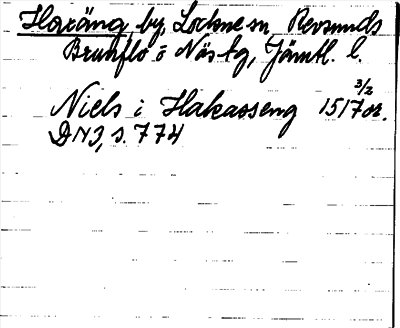 Haxäng, by, Lockne sn, Revsunds
Brunflo o Näs tg, Jämtl. l.
Niels i Hakasseng 1517 3/2 or.
DN3, s. 774